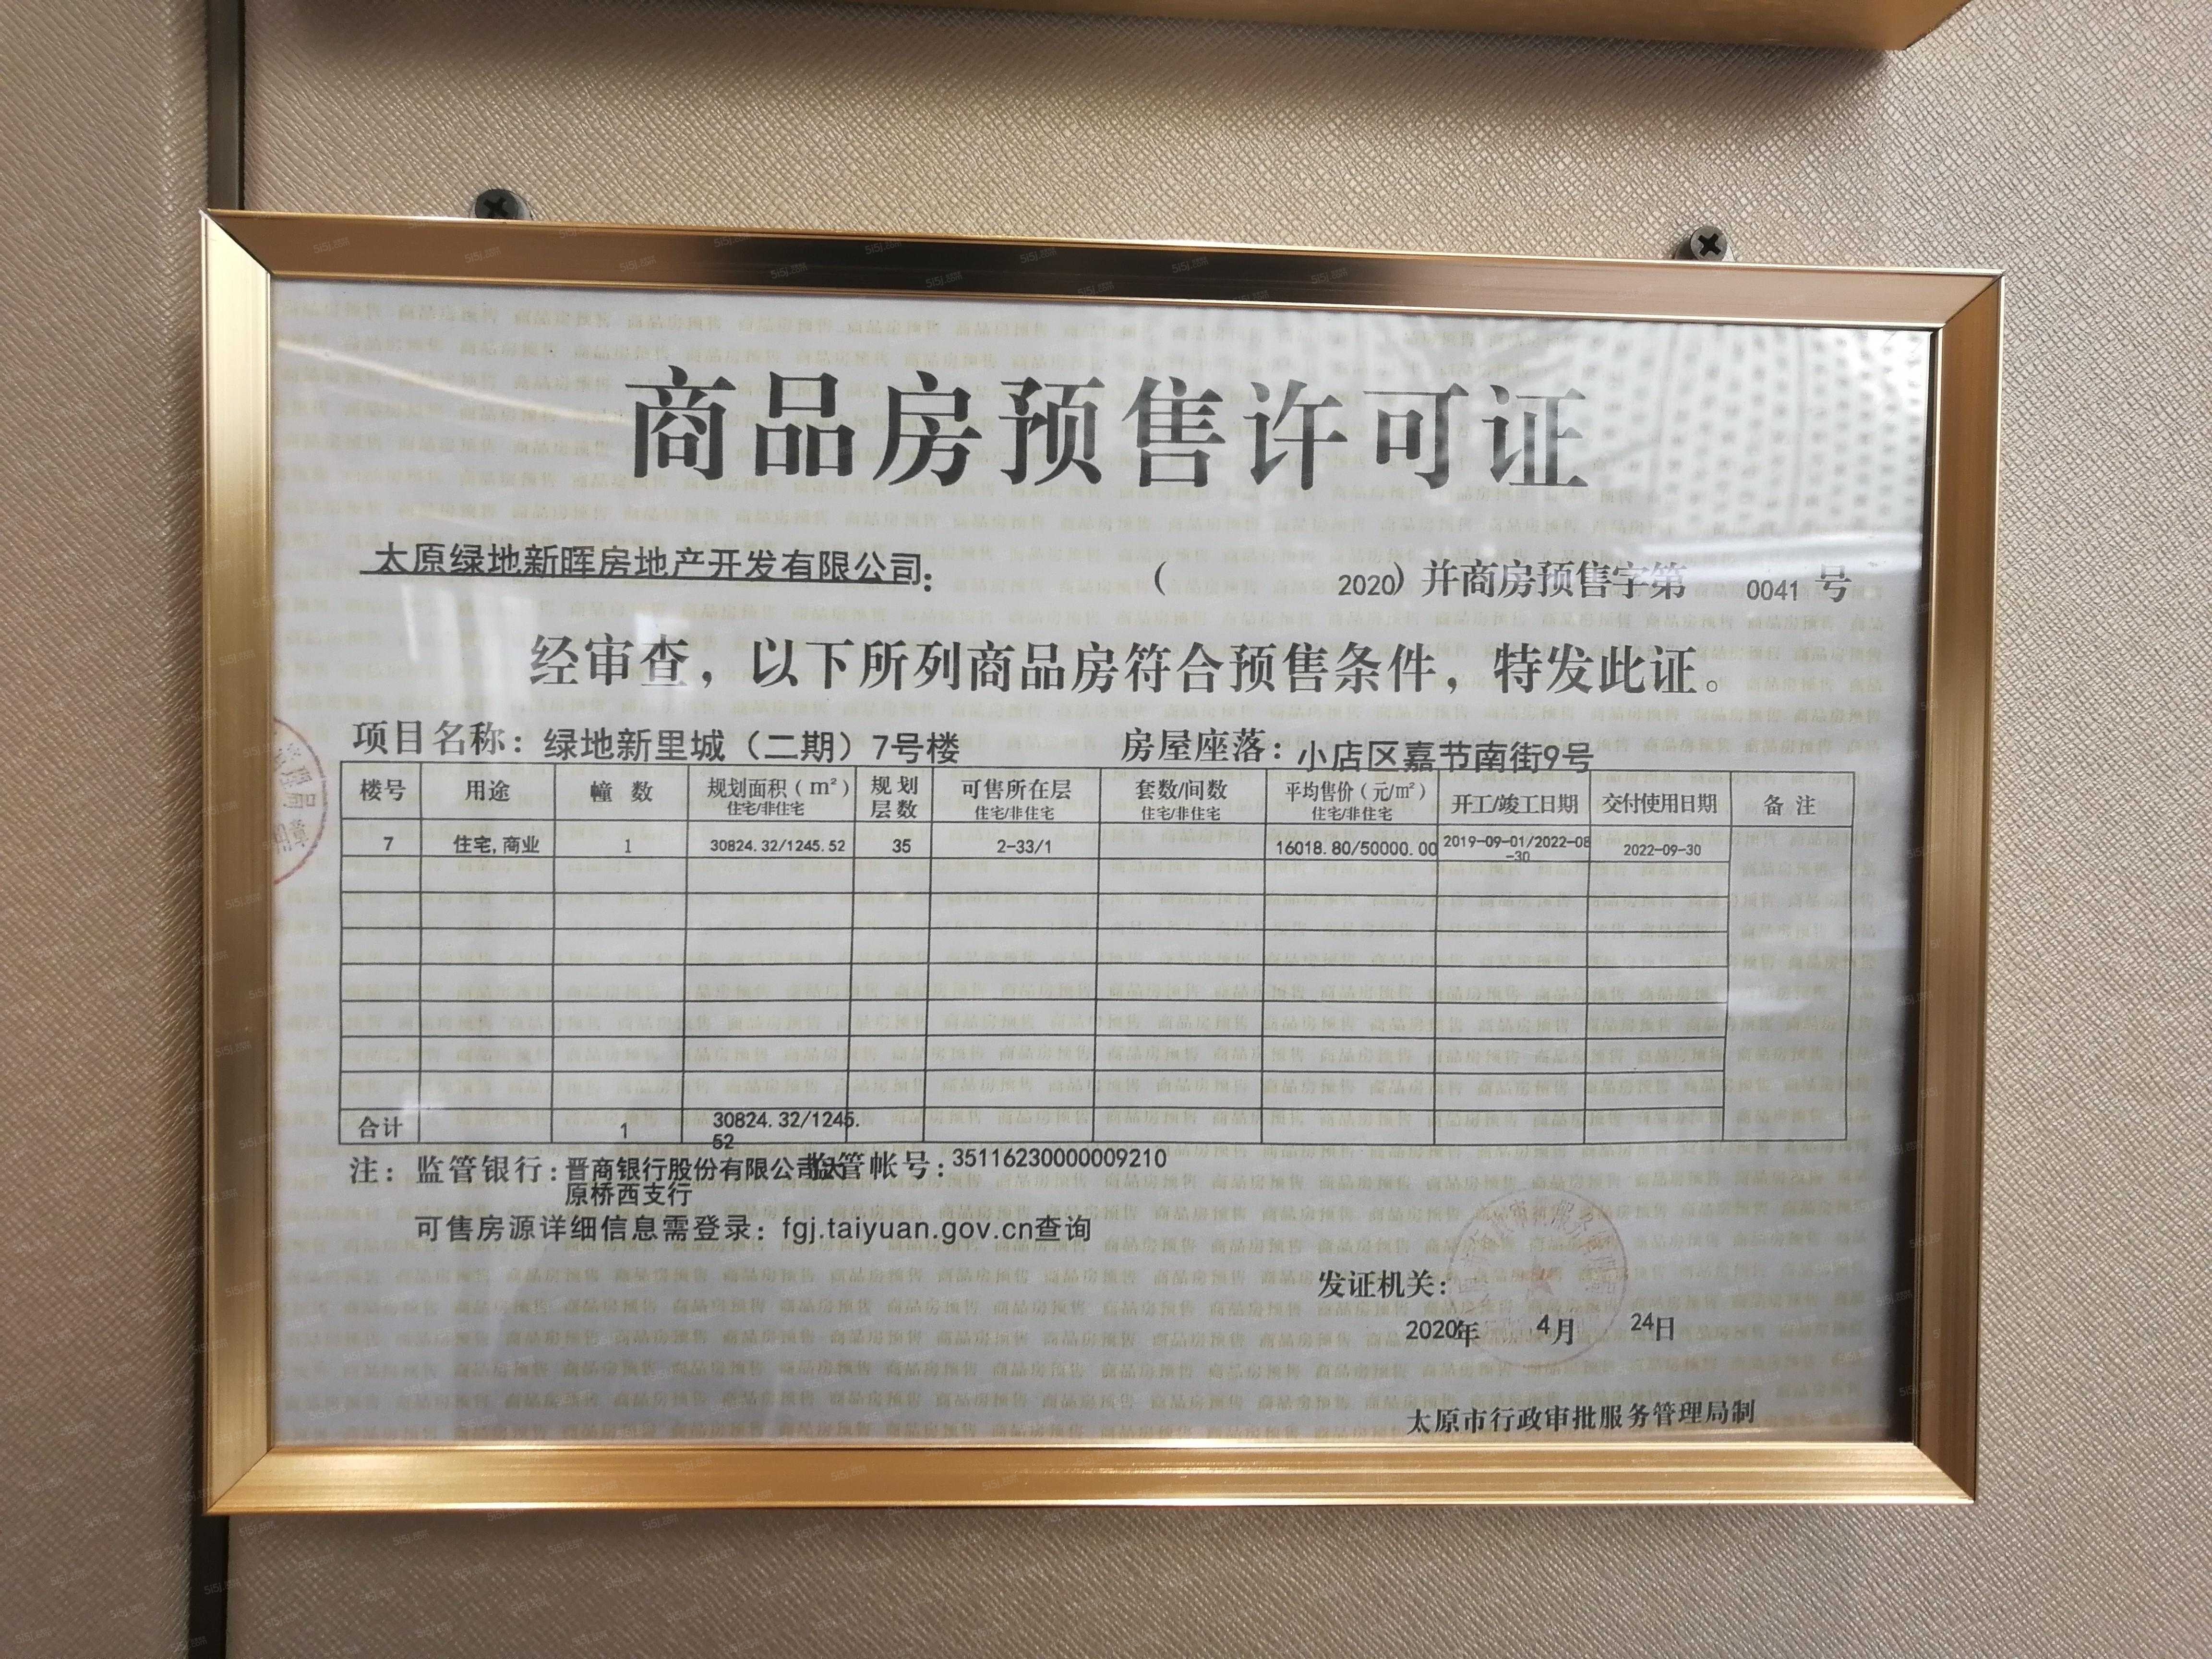 商品房预售许可证
太原绿地新晖房地产开发有限公司： （ 2020）并商房预售字第 0041 号
经审查，以下所列商品房符合预售条件，特发此证。
项目名称：绿地新里城（二期）7号楼 房屋座落：小店区嘉节南街9号
楼号 用途 幢 数 规划面积（m²） 住宅/非住宅 规划层数 可售所在层 住宅/非住宅 套数/间数 住宅/非住宅 平均售价（元/m²） 住宅/非住宅 开工/竣工日期 交付使用日期 备 注
7 住宅,商业 1 30824.32/1245.52 35 2-33/1 16018.80/50000.00 2019-09-01/2022-08-30 2022-09-30
合计 1 30824.32/1245.52
注：监管银行：晋商银行股份有限公司太原桥西支行 监管帐号：35116230000009210
可售房源详细信息需登录：fgj.taiyuan.gov.cn查询
发证机关：
2020年 4月 24日
太原市行政审批服务管理局制